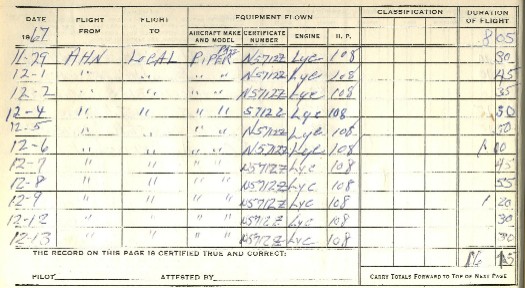 DATE FLIGHT FROM FLIGHT TO EQUIPMENT FLOWN CLASSIFICATION DURATION OF FLIGHT
1967 AIRCRAFT MAKE AND MODEL CERTIFICATE NUMBER ENGINE H. P. 8 05
11-29 AHN LOCAL PIPER N5712Z Lyc 108 30
12-1 " " " " N5712Z Lyc 108 45
12-2 " " " " N5712Z Lyc 108 35
12-4 " " " " 5712Z Lyc 108 50
12-5 " " " " N5712Z Lyc 108 50
12-6 " " " " N5712Z Lyc 108 1 00
12-7 " " " " N5712Z Lyc 108 45
12-8 " " " " N5712Z Lyc 108 55
12-9 " " " " N5712Z Lyc 108 1 20
12-12 " " " " N5712Z Lyc 108 30
12-13 " " " " N5712Z Lyc 108 30
THE RECORD ON THIS PAGE IS CERTIFIED TRUE AND CORRECT:
PILOT ATTESTED BY CARRY TOTALS FORWARD TO TOP OF NEXT PAGE